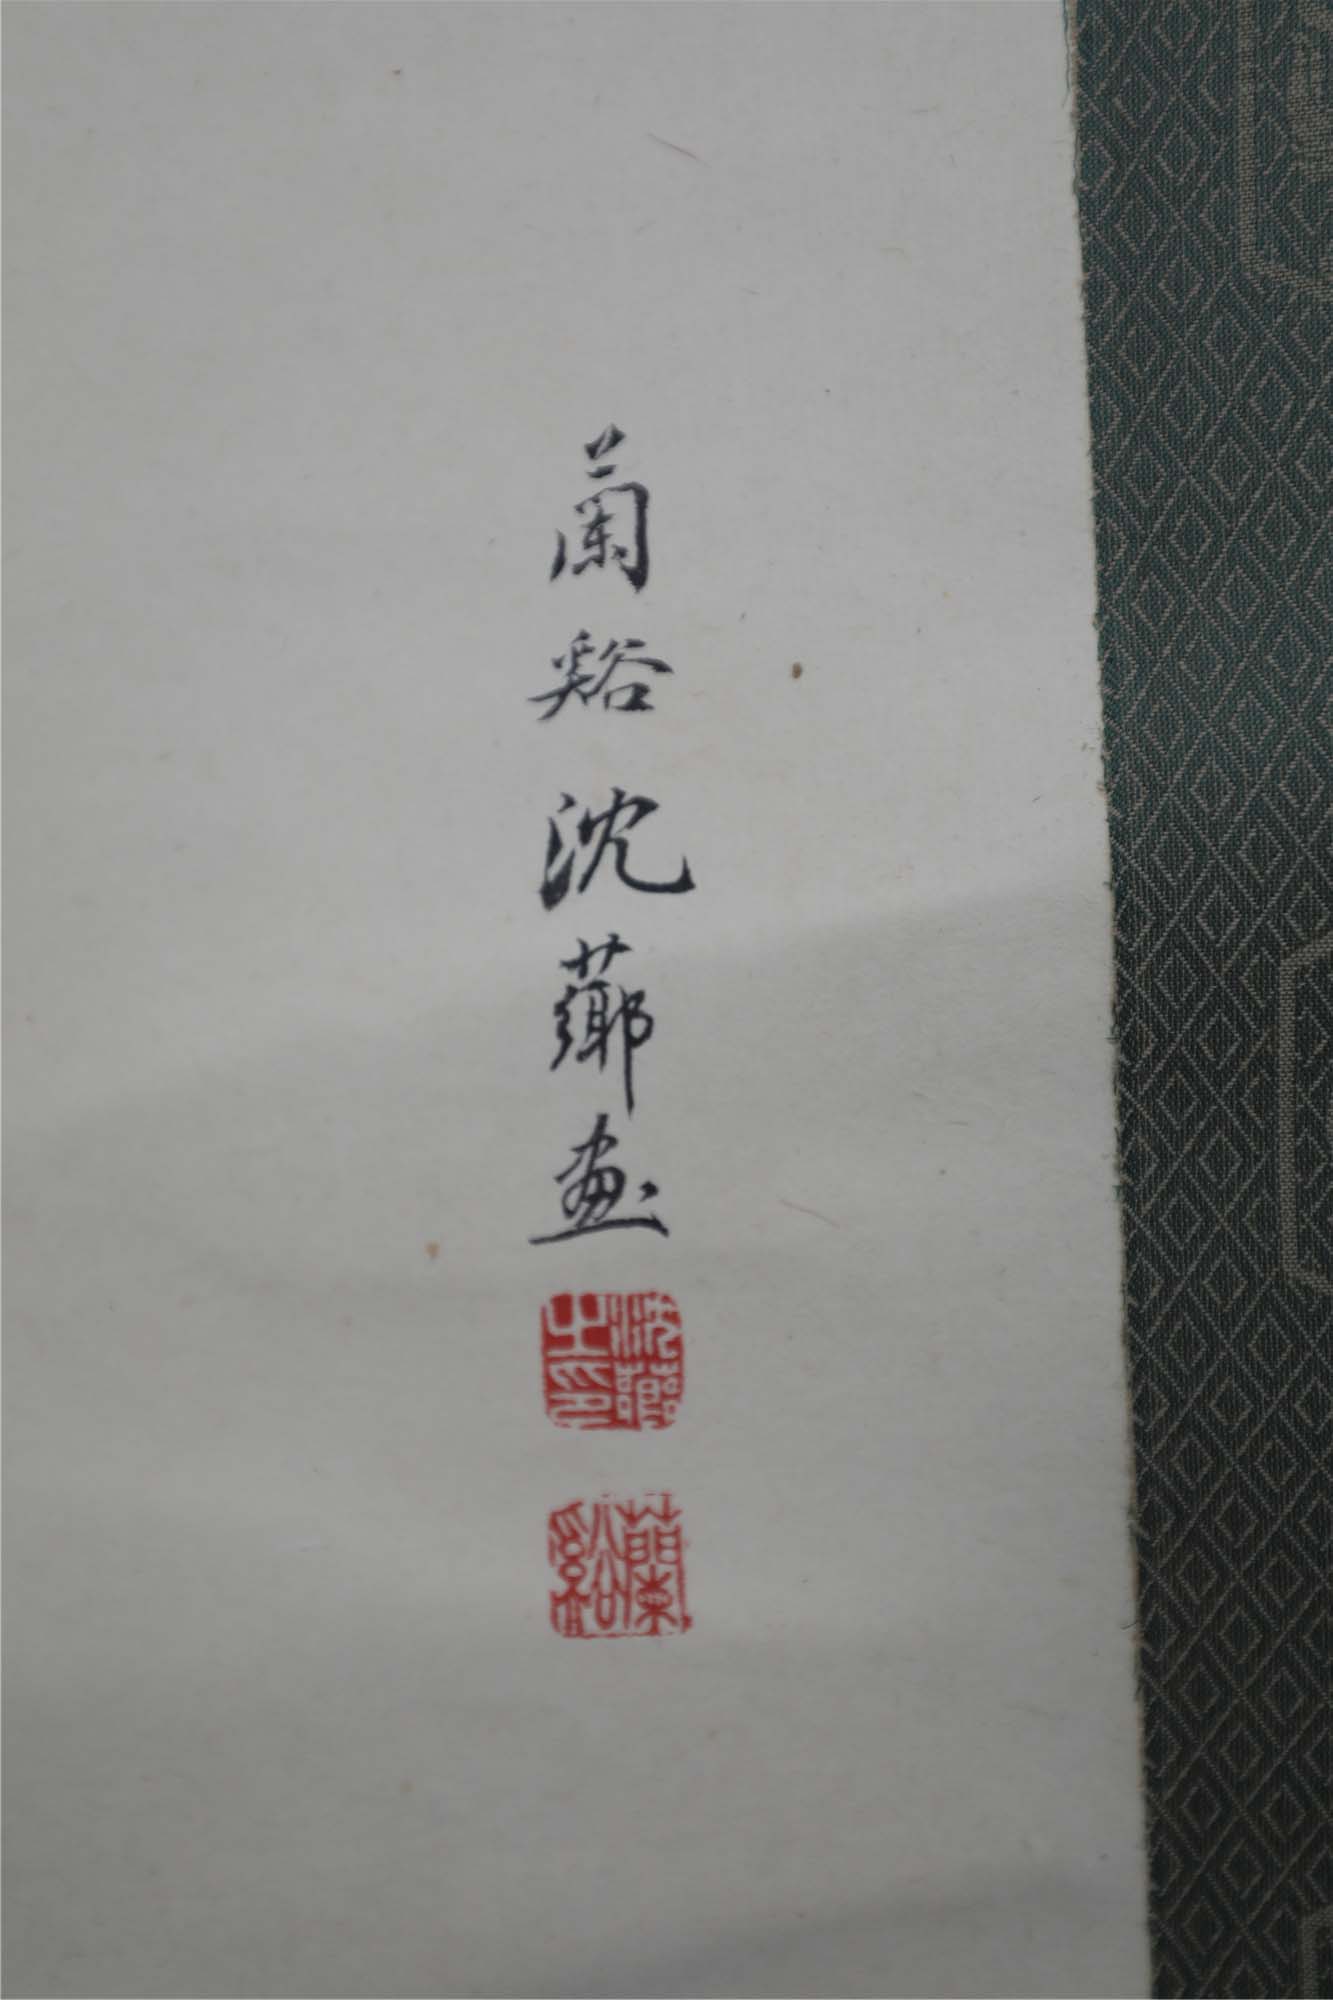 蘭谿沈薌畫
沈薌之印
蘭谿